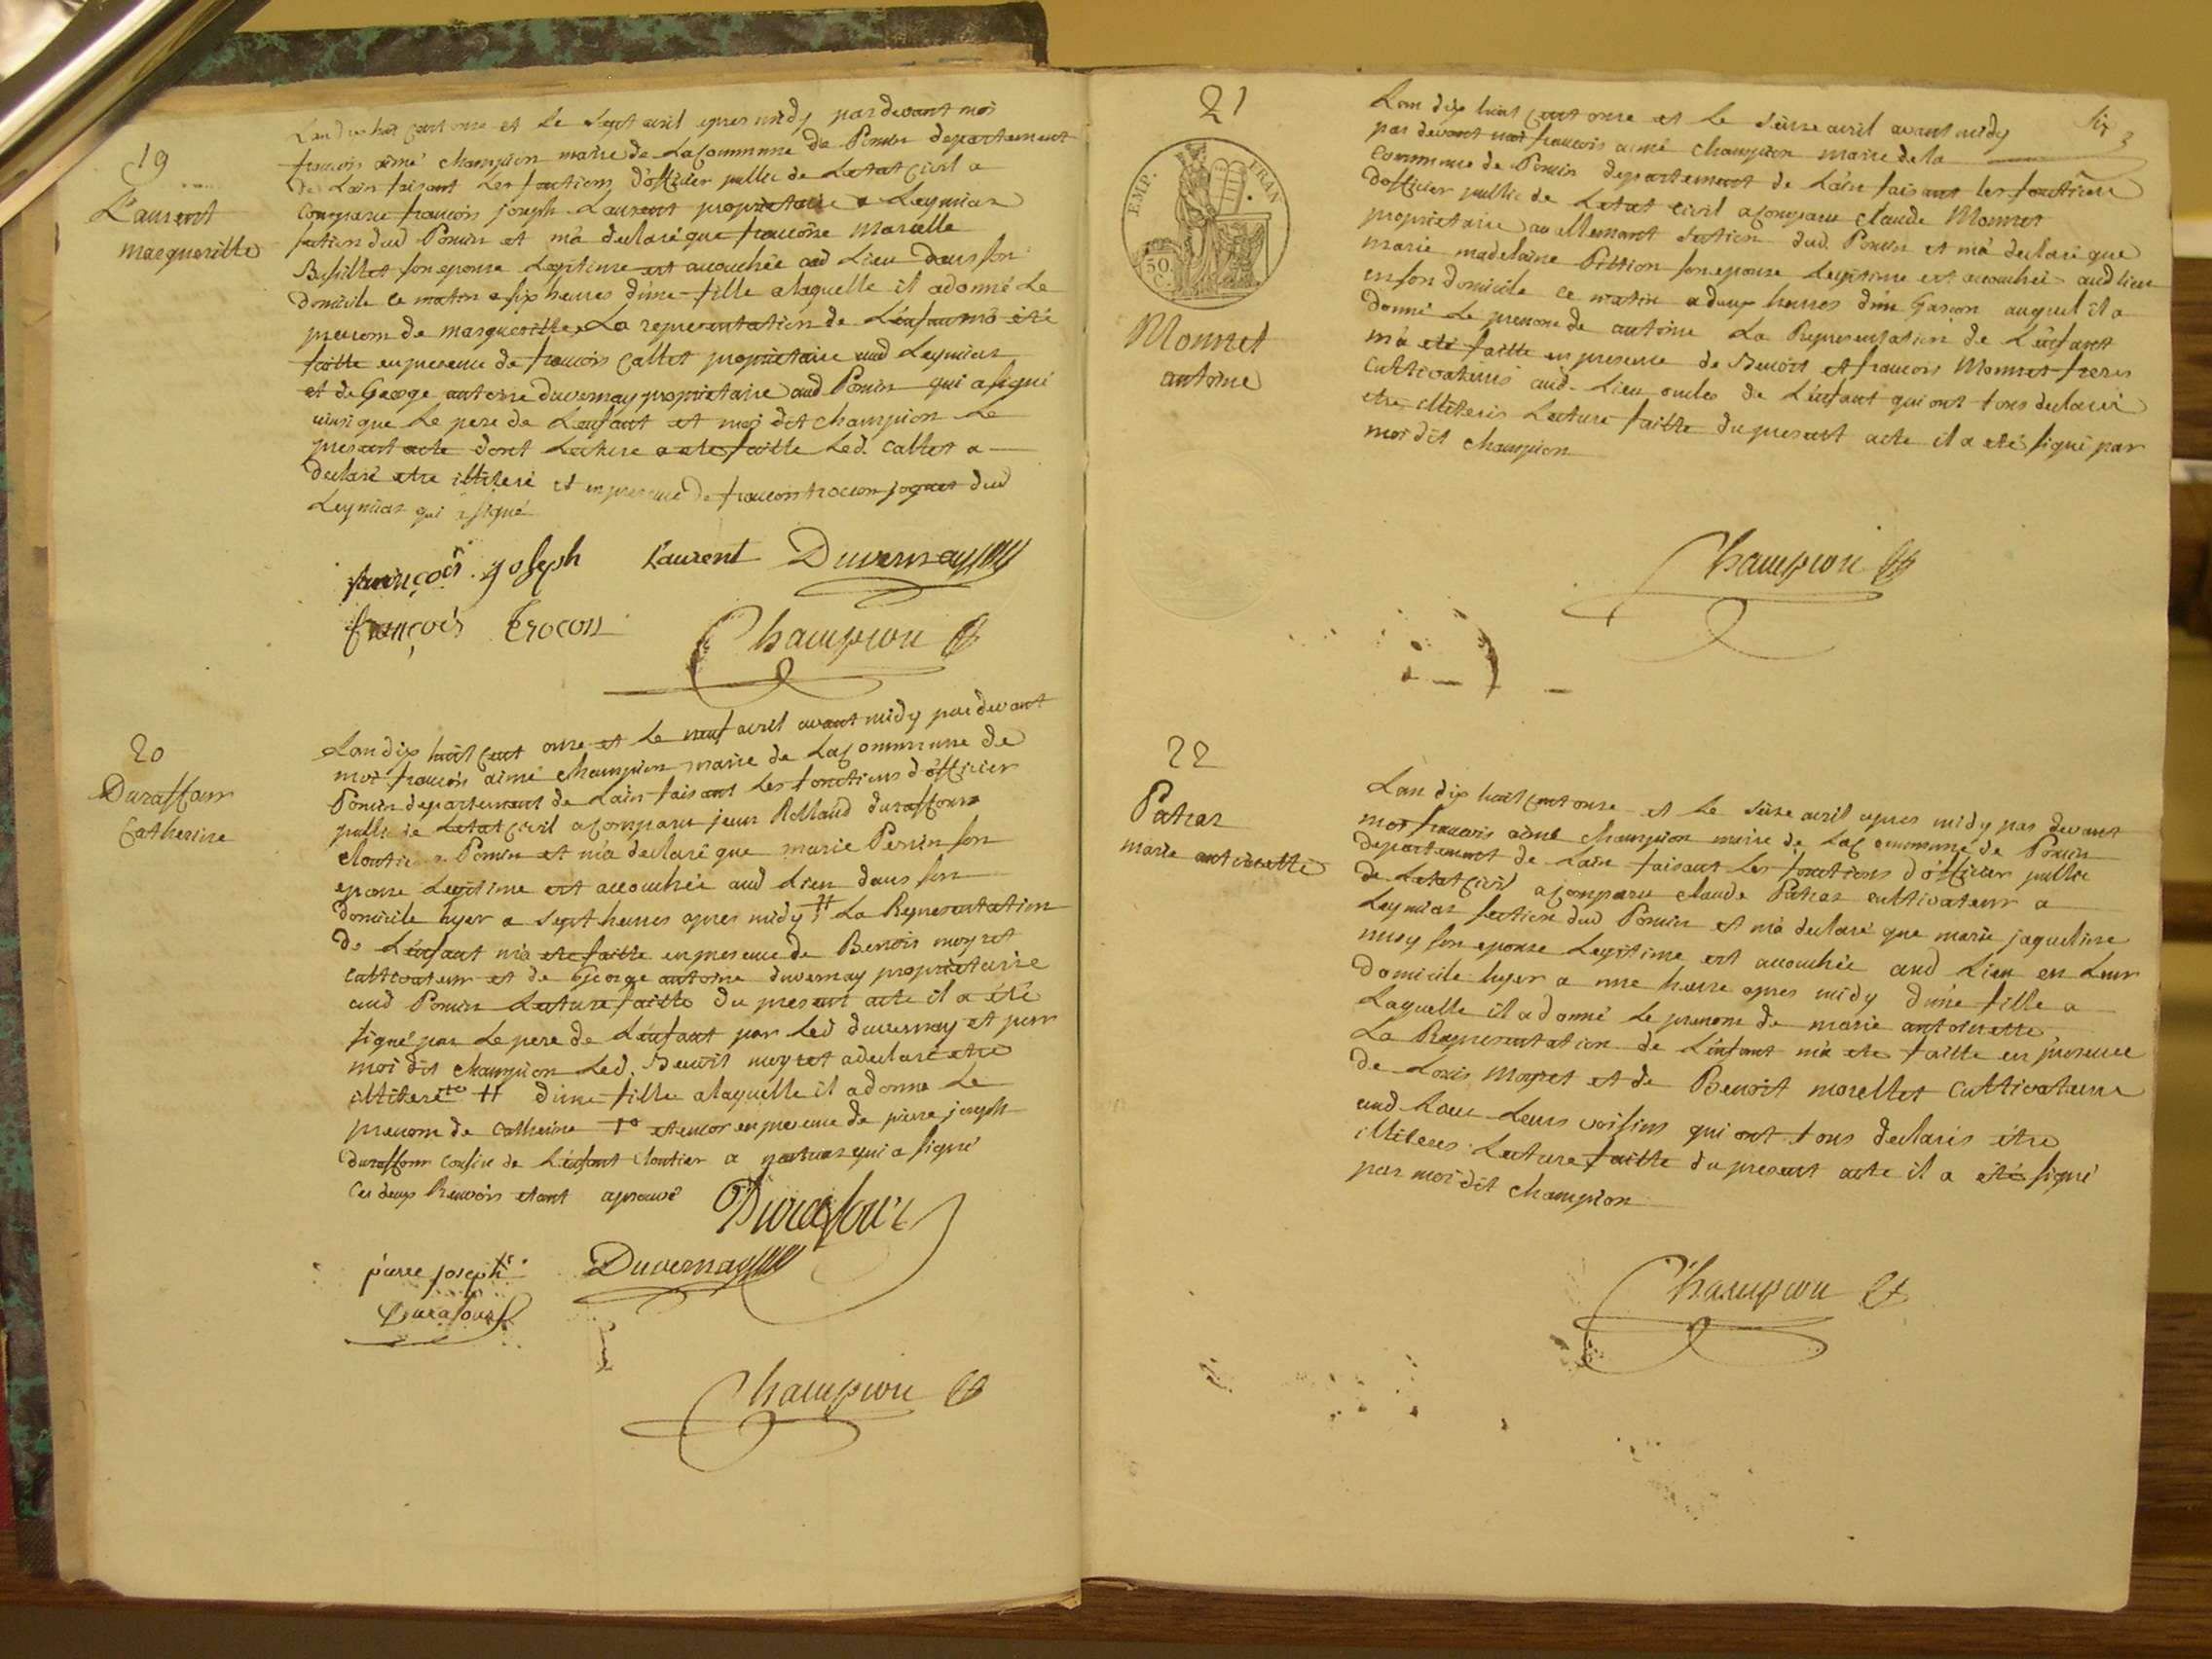 19
Laurent
margueritte
Lan dix huit cent onze et le sept avril apres midy par devant moi
francois aimé champion maire de la commune de Poncin departement
de Lain faisant les fonctions d'officier public de Letat civil a
comparu francois joseph Laurent proprietaire a Leymiat
section dud Poncin et m'a declaré que francoise Marcelle
son epouse Legitime est accouchée aud Lieu dans son
domicile ce matin a six heures d'une fille a laquelle il a donné Le
prenom de margueritte, La representation de L'enfant m'a été
faitte en presence de francois Caltet proprietaire aud Leymiat
et de George antoine duvernay proprietaire aud Poncin qui a signé
ainsi que Le pere de Lenfant et moi dit champion Le
present acte dont Lecture a ete faitte Led. Caltet a
declaré etre illiteré et en presence de francois trocon joquet dud
Leymiat qui a signé
françois joseph Laurent Duvernay
françois Trocon
Champion
20
Duraffour
Catherine
Lan dix huit cent onze et le neuf avril avant midy par devant
moi francois aimé champion maire de La commune de
Poncin departement de Lain faisant les fonctions d'officier
public de Letat civil a comparu jean Rolland duraffour
cloutier a Poncin et m'a declaré que marie Perrin son
epouse Legitime est accouchée aud Lieu dans son
domicile hyer a sept heures apres midy # La Representation
de L'enfant m'a ete faitte en presence de Benoit moyret
cultivateur et de George antoine duvernay proprietaire
aud Poncin Lecture faitte du present acte il a été
signé par Le pere de L'enfant par Led duvernay et par
moi dit champion Led. Benoit moyret a declaré etre
illiteré # d'une fille a laquelle il a donné Le
prenom de catherine et encor en presence de pierre joseph
duraffour cousin de L'enfant cloutier a qui a signé
Ces deux Renvois etant aprouvé Duraffour
pierre joseph Duvernay
Durafour
Champion
21
EMP. FRAN
50 C.
Six
Monnet
antoine
Lan dix huit cent onze et le seize avril avant midy
par devant moi francois aimé champion maire de la
commune de Poncin departement de Lain faisant les fonctions
d'officier public de Letat civil a comparu claude Monnet
proprietaire au allemant section dud. Poncin et m'a declaré que
marie madelaine Pittion son epouse Legitime est accouchée aud lieu
en son domicile ce matin a deux heures d'un Garçon auquel il a
donné Le prenom de antoine La Representation de L'enfant
m'a été faitte en presence de Benoit et francois Monnet freres
cultivateurs aud. Lieu oncles de L'enfant qui ont tous declaré
etre illiterés Lecture faitte du present acte il a été signé par
moi dit champion
Champion
22
Patras
marie antoinette
Lan dix huit cent onze et le seize avril apres midy par devant
moi francois aimé champion maire de La commune de Poncin
departement de Lain faisant les fonctions d'officier public
de Letat civil a comparu claude Patras cultivateur a
Leymiat section dud Poncin et m'a declaré que marie jaqueline
son epouse Legitime est accouchée aud Lieu en Leur
domicile hyer a une heure apres midy d'une fille a
Laquelle il a donné Le prenom de marie antoinette
La Representation de L'enfant m'a ete faitte en presence
de Louis Moyret et de Benoit morellet cultivateurs
aud Lieu Leurs voisins qui ont tous declarés être
illiterés Lecture faitte du present acte il a été signé
par moi dit champion
Champion